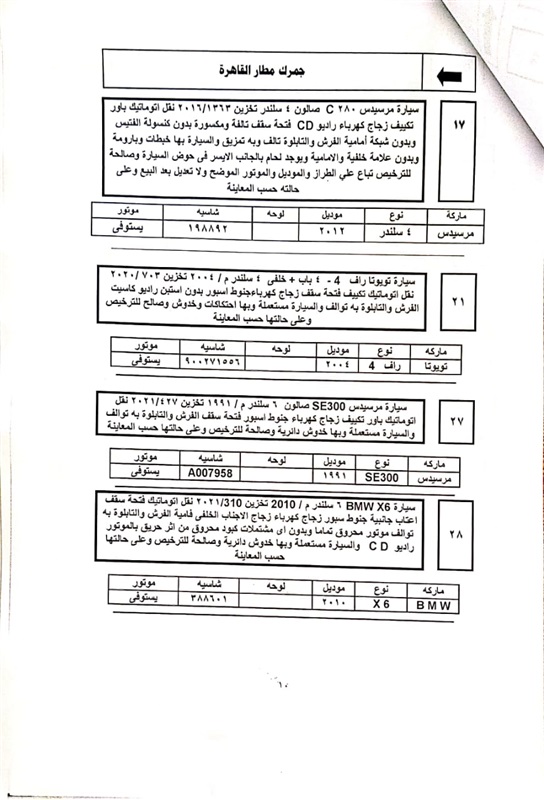 جمرك مطار القاهرة
١٧
سيارة مرسيدس C ٢٨٠ صالون ٤ سلندر تخزين ٢٠١٦/١٣٦٣ نقل اتوماتيك باور
تكييف زجاج كهرباء راديو CD فتحة سقف تالفة ومكسورة بدون كنسولة الفتيس
وبدون شبكة أمامية الفرش والتابلوة تالف وبه تمزيق والسيارة بها خبطات وبارومة
وبدون علامة خلفية والامامية ويوجد لحام بالجانب الايسر فى حوض السيارة وصالحة
للترخيص تباع علي الطراز والموديل والموتور الموضح ولا تعديل بعد البيع وعلى
حالته حسب المعاينة
ماركة نوع موديل لوحه شاسيه موتور
مرسيدس ٤ سلندر ٢٠١٢ ١٩٨٨٩٢ يستوفى
٢١
سيارة تويوتا راف 4 - ٤ باب + خلفى ٤ سلندر م / ٢٠٠٤ تخزين ٧٠٣ /٢٠٢٠
نقل اتوماتيك تكييف فتحة سقف زجاج كهرباءجنوط اسبور بدون استبن راديو كاسيت
الفرش والتابلوة به توالف والسيارة مستعملة وبها احتكاكات وخدوش وصالح للترخيص
وعلى حالتها حسب المعاينة
ماركه نوع موديل لوحه شاسيه موتور
تويوتا راف 4 ٢٠٠٤ ٩٠٠٢٧١٥٥٦ يستوفى
٢٧
سيارة مرسيدس SE300 صالون ٦ سلندر م / ١٩٩١ تخزين ٢٠٢١/٤٢٧ نقل
اتوماتيك باور تكييف زجاج كهرباء جنوط اسبور فتحة سقف الفرش والتابلوة به توالف
والسيارة مستعملة وبها خدوش دائرية وصالحة للترخيص وعلى حالتها حسب المعاينة
ماركه نوع موديل لوحه شاسيه موتور
مرسيدس SE300 ١٩٩١ A007958 يستوفى
٢٨
سيارة BMW X6 ٦ سلندر م / 2010 تخزين 2021/310 نقل اتوماتيك فتحة سقف
اعتاب جانبية جنوط سبور زجاج كهرباء زجاج الاجناب الخلفى فامية الفرش والتابلوة به
توالف موتور محروق تماما وبدون اى مشتملات كبود محروق من اثر حريق بالموتور
راديو C D والسيارة مستعملة وبها خدوش دائرية وصالحة للترخيص وعلى حالتها
حسب المعاينة
ماركه نوع موديل لوحه شاسيه موتور
B M W X 6 ٢٠١٠ ٣٨٨٦٠١ يستوفى
١٠